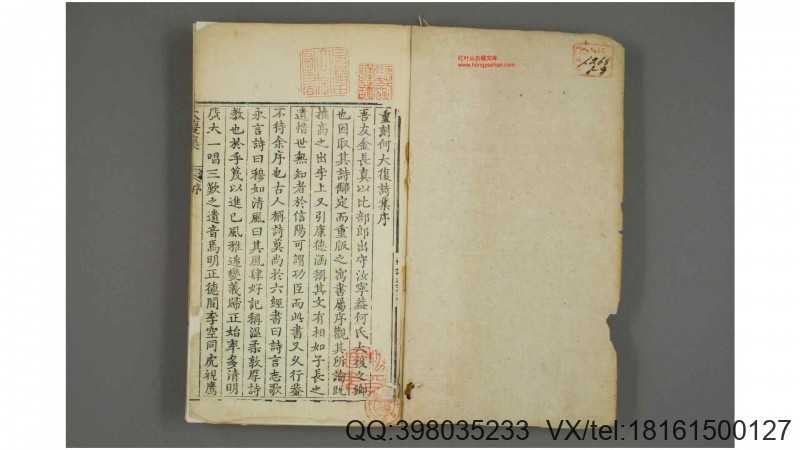 重刻何大復詩集序
吾友金長真以比部郎出守汝寧葢何氏大復之鄉
也因取其詩辭定而重版之寓書屬序觀其所論既
推高之出李上又引康德涵稱其文有相如子長之
遺惜世無知者於信陽可謂功臣而此書又久行
不待余序也古人稱詩莫尚於六經書曰詩言志歌
永言詩曰穆如清風曰其風肆好記稱溫柔敦厚詩
教也於乎蔑以進已風雅遞變義歸正始率多清明
廣大一唱三歎之遺音焉明正德間李空同虎視鷹
序
红叶山古籍文库
www.hongyeshan.com
QQ:398035233 VX/tel:18161500127